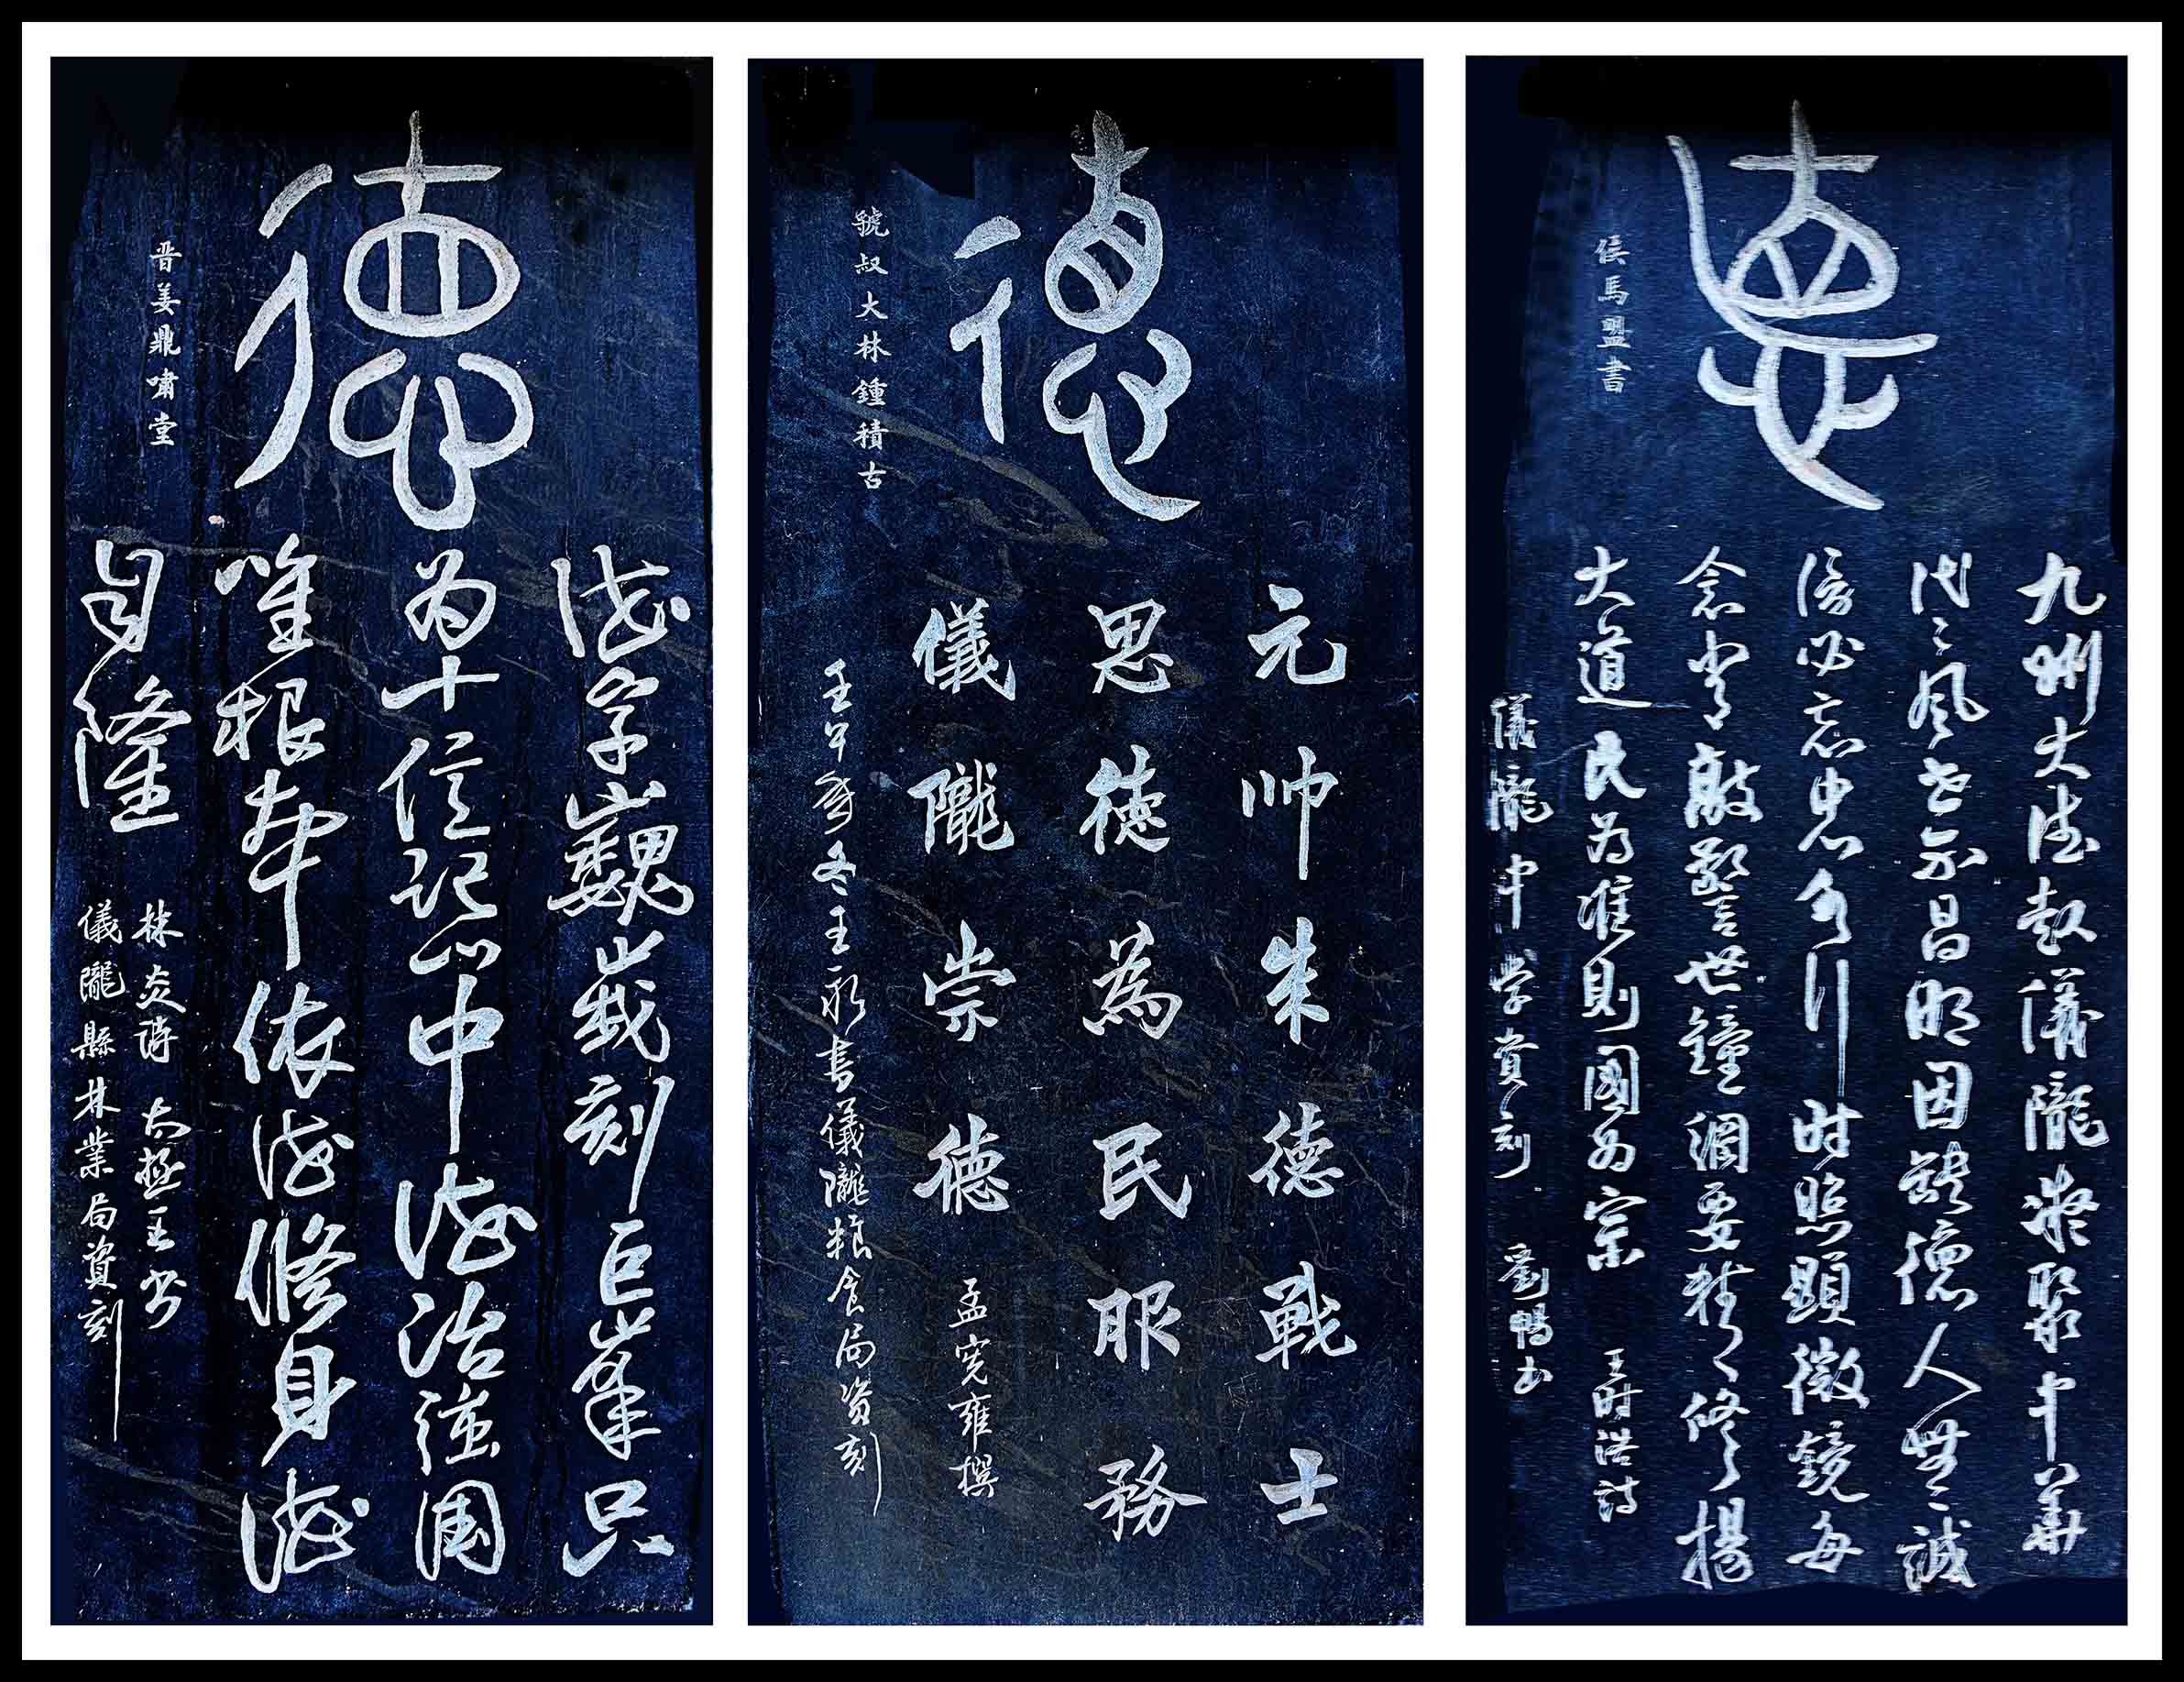 德
侯馬盟書
九州大德起儀隴凝聚中華
代々風昌明因德人無誠
信必忘忠行时照顯微鏡每
念常敲警世鐘綱要修揚
大道民为准则國为宗 王时浩詩
儀隴中学資刻 劉暢书
德
虢叔大林鍾積古
元帅朱德戰士
思德為民服務
儀隴崇德 孟宪雍撰
壬午年冬王永書儀隴粮食局资刻
德
晋姜鼎嘯堂
德字巍峩刻巨峯只
为十億記心中德治強國
唯根本依德修身德
自隆 林炎诗 太極王书
儀隴縣林業局資刻